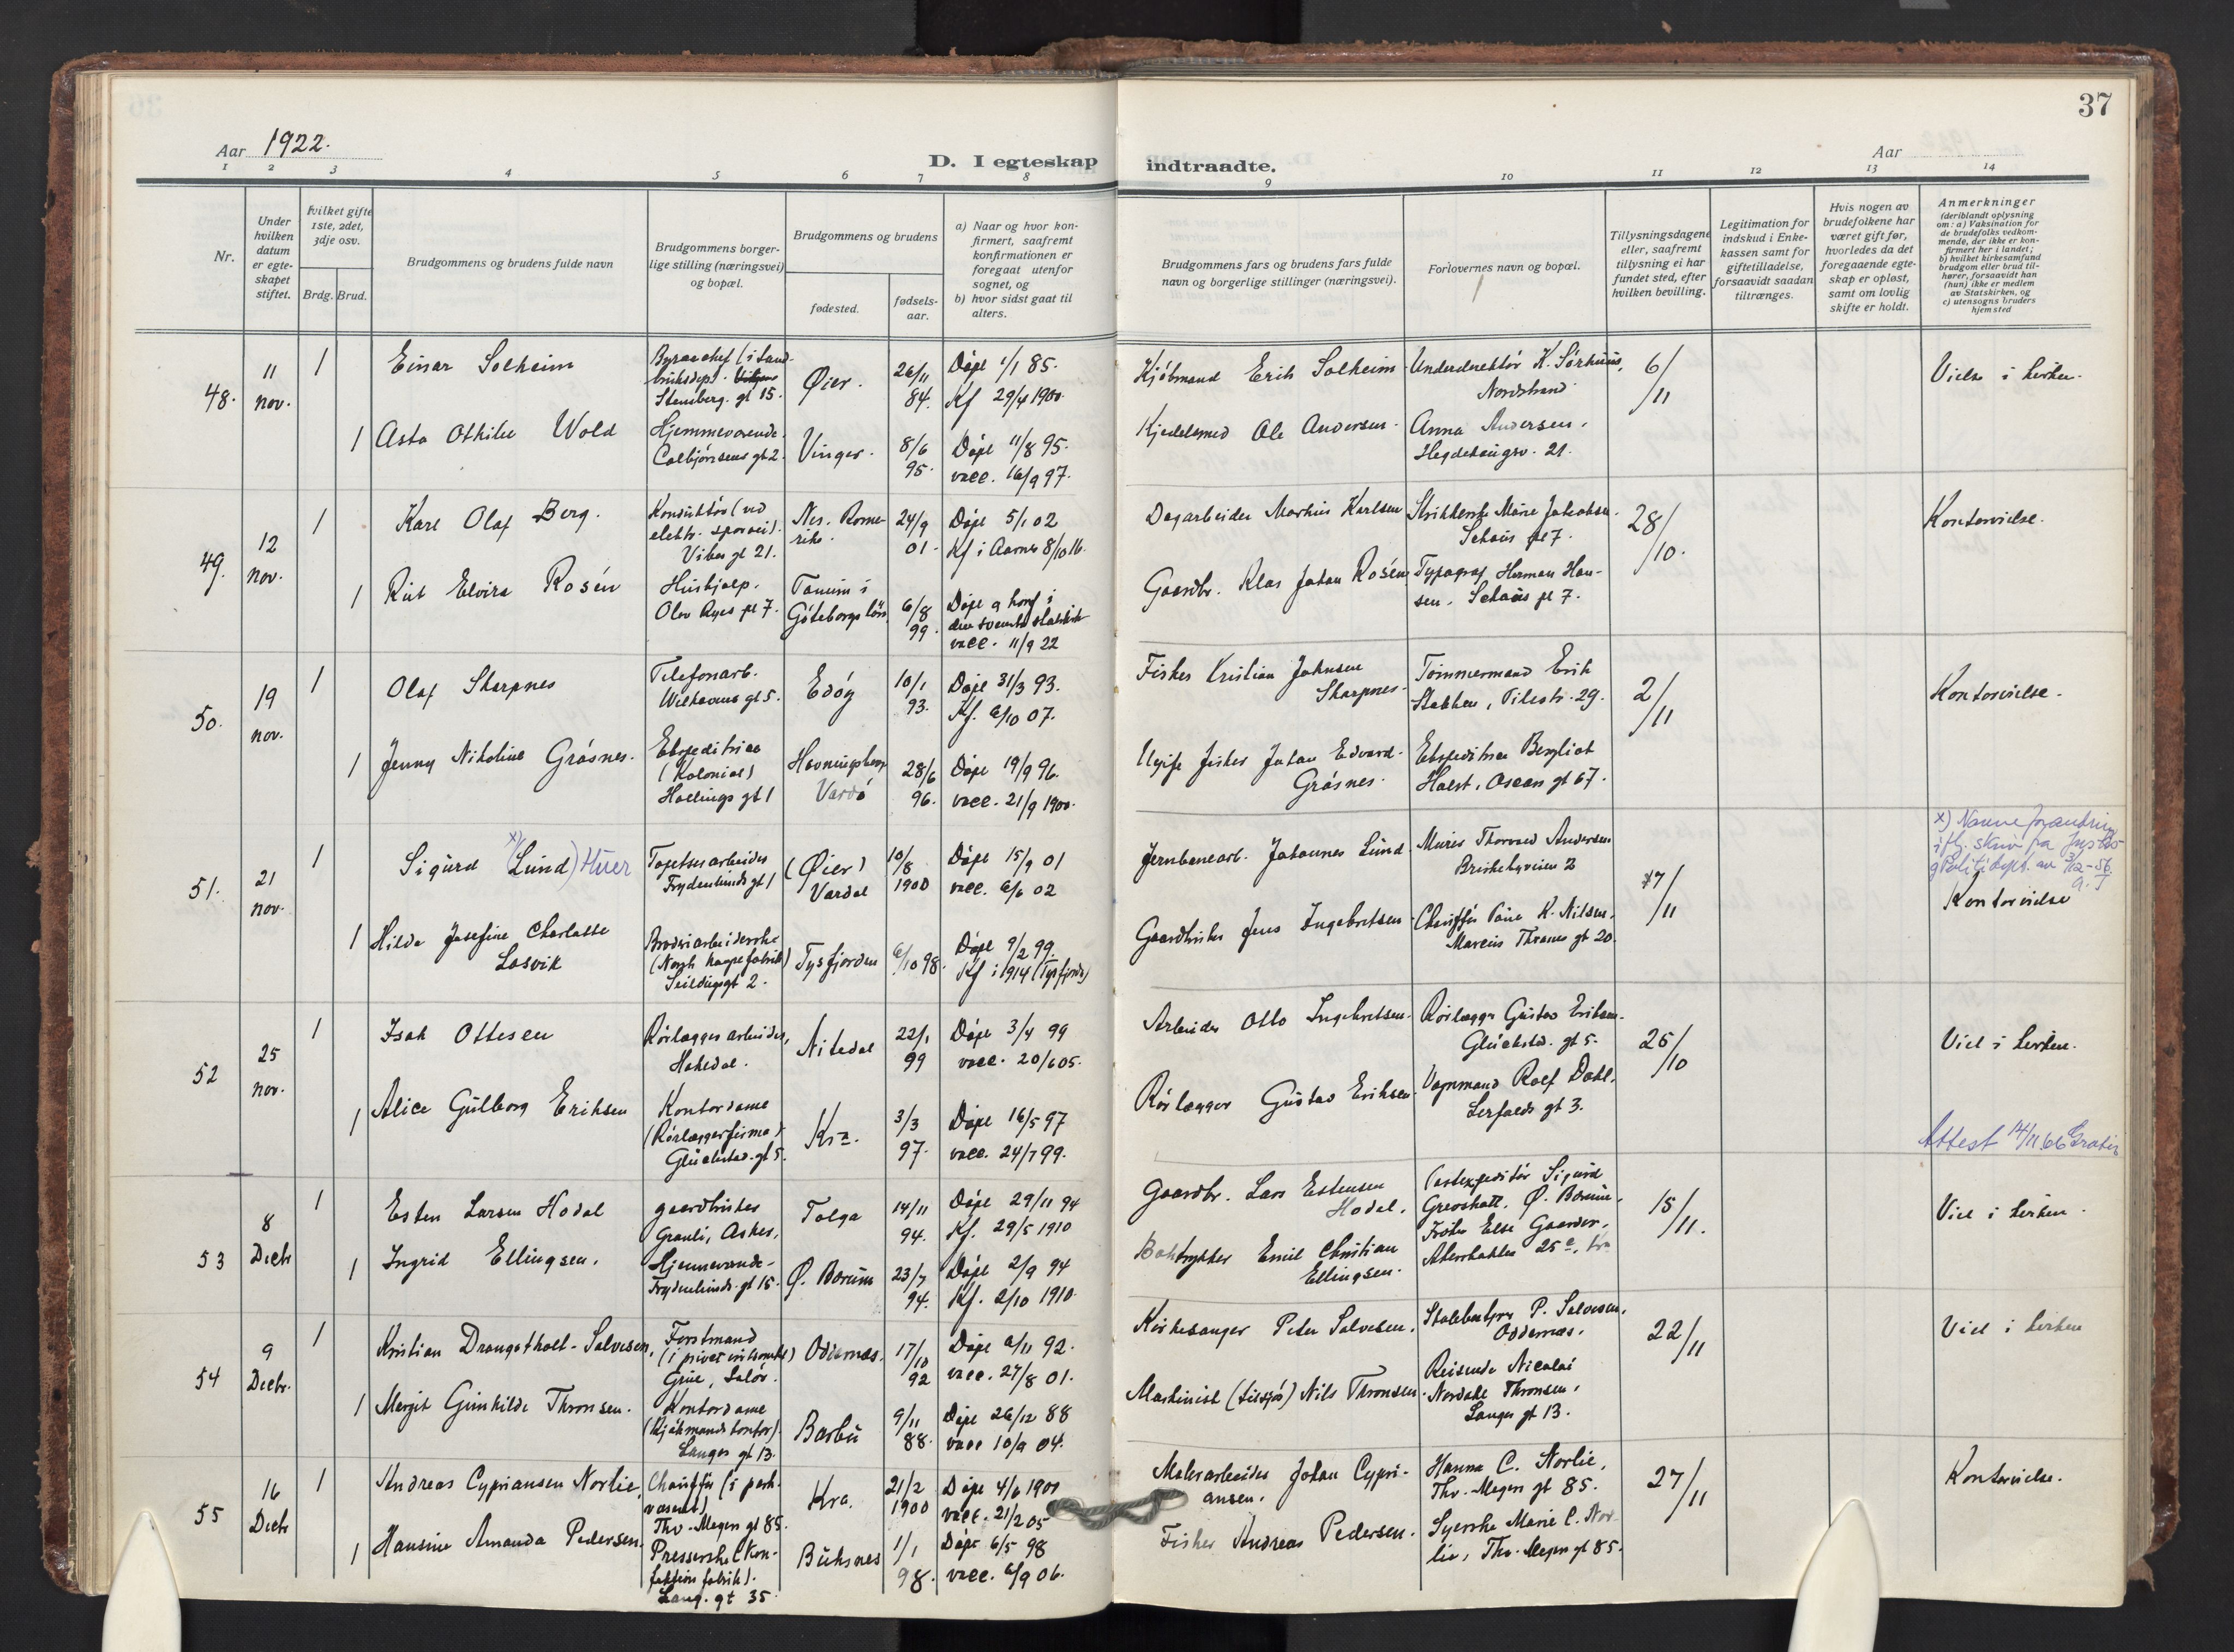 37
Aar 1922.
D. I egteskap indtraadte.
Aar
1 2 3 4 5 6 7 8 9 10 11 12 13 14
Nr.
Under
hvilken
datum
er egte-
skapet
stiftet.
hvilket gifte
1ste, 2det,
3dje osv.
Brdg. Brud.
Brudgommens og brudens fulde navn
Brudgommens borger-
lige stilling (næringsvei)
og bopæl.
Brudgommens og brudens
fødested.
fødsels-
aar.
a) Naar og hvor kon-
firmert, saafremt
konfirmationen er
foregaat utenfor
sognet, og
b) hvor sidst gaat til
alters.
Brudgommens fars og brudens fars fulde
navn og borgerlige stillinger (næringsvei).
Forlovernes navn og bopæl.
Tillysningsdagene
eller, saafremt
tillysning ei har
fundet sted, efter
hvilken bevilling.
Legitimation for
indskud i Enke-
kassen samt for
giftetilladelse,
forsaavidt saadan
tiltrænges.
Hvis nogen av
brudefolkene har
været gift før,
hvorledes da det
foregaaende egte-
skap er opløst,
samt om lovlig
skifte er holdt.
Anmerkninger
(deriblandt oplysning
om: a) Vaksination for
de brudefolks vedkom-
mende, der ikke er kon-
firmert her i landet;
b) hvilket kirkesamfund
brudgom eller brud til-
hører, forsaavidt han
(hun) ikke er medlem
av Statskirken, og
c) utensogns bruders
hjemsted
48.
11
nov.
1
Einar Solheim
Byraachef (i Land-
bruksdept.
Stensberg. gt 15.
Øier.
26/11
84.
Døpt 1/1 85.
Kf 29/4 1900.
Kjøbmand Erik Solheim
Underdirektør K. Sørhuus,
Nordstrand
6/11
Vielse i kirken.
1
Asta Othilie Wold
Hjemmeværende.
Colbjørnsens gt 2.
Vinger.
8/6
95.
Døpt 11/8 95.
vacc. 16/9 97.
Kjedelsmed Ole Andersen.
Anna Andersen,
Hegdehaugsv. 21.
49.
12
nov.
1
Karl Olaf Berg.
Konduktør (ved
elektr. sporvei).
Vibes gt 21.
Nes. Rome-
rike.
24/9
01.
Døpt 5/1 02
Kf i Aarnes 8/10 16.
Dagarbeider Markus Karlsen
Strikkerske Marie Jakobsen.
Schous pl 7.
28/10.
Kontorvielse.
1
Rut Elvira Rosén
Hushjælp.
Olav Ryes pl 7.
Tanum i
Göteborgs län
6/8
99.
Døpt og konf i
den svenske statskirke
vacc. 11/9 22
Gaardbr. Klas Johan Rosén
Typograf Herman Han-
sen. Schous pl 7.
50.
19
nov.
1
Olaf Skarpnes
Telefonarb.
Welhavens gt 5.
Edøy
10/1
93.
Døpt 31/3 93.
Kf. 6/10 07.
Fisker Kristian Johnsen
Skarpnes.
Tømmermand Erik
Stokken, Pilestr. 29.
2/11
Kontorvielse.
1
Jenny Nikoline Grøsnes.
Ekspeditrice
(Kolonial)
Hallings gt 1
Havningsberg
Vardø
28/6
96.
Døpt 19/9 96.
vacc. 21/9 1900.
Ugift fisker Johan Edvard
Grøsnes.
Ekspeditrice Bergliot
Holst, Oscars gt 67.
51.
21
nov.
1
Sigurd x) (Lund) Huer
Tapetserarbeider
Frydenlunds gt 1
(Øier)
Vardal
10/8
1900
Døpt 15/9 01
vacc. 6/6 02
Jernbanearb. Johannes Lund
Murer Thorvald Andersen
Briskebyveien 2
17/11
x) Navneforandring
iflg. skriv fra Justis-
og Politidept. av 3/12-56.
Kontorvielse
1
Hilda Josefine Charlotte
Losvik
Broderiarbeiderske
(Norsk kaapefabrik)
Seildugsgt 2.
Tysfjorden
6/10 98.
Døpt 9/2 99.
Kf i 1914 (Tysfjorden)
Gaardbruker Jens Ingebretsen
Chauffør Paul K. Nilsen,
Marcus Thranes gt 20.
52
25
nov.
1
Isak Ottesen
Rørlæggerarbeider,
Hakedal.
Nitedal
22/1
99
Døpt 3/4 99
vacc. 20/6 05.
Arbeider Otto Ingebretsen.
Rørlægger Gustav Eriksen.
Glückstad. gt 5.
26/10
Viel i kirken.
1
Alice Gulborg Eriksen
Kontordame
(Rørlæggerfirma)
Glückstad. gt 5.
Kra.
3/3
97.
Døpt 16/5 97
vacc. 24/7 99.
Rørlægger Gustav Eriksen
Vognmand Rolf Dahl.
Lerfalds gt 3.
Attest 14/11.66 Gratis
53
8
Decbr
1
Esten Larsen Hodal
gaardbruker
Granli, Asker.
Tolga
14/11
94.
Døpt 29/11 94
Kf. 29/5 1910
Gaardbr. Lars Estensen
Hodal.
Sigurd
Ø. Bærum.
15/11.
Viel i kirken.
1
Ingrid Ellingsen.
Hjemmeværende.
Frydenlunds gt 15.
Ø. Bærum
23/7
94.
Døpt 2/9 94
Kf. 2/10 1910.
Boktrykker Emil Christian
Ellingsen.
Frøken Else Gaarder.
Akersbakken 25 c, Kra
54
9
Decbr.
1
Kristian Drangsholt-Salvesen,
Forstmand
(i privat virksomhet)
Grue, Solør.
Oddernæs.
17/10
92
Døpt 6/11 92.
vacc. 27/8 01.
Kirkesanger Peder Salvesen.
P. Salvesen.
Oddernæs.
22/11
Viel i kirken
1
Margit Gunhilde Thronsen.
Kontordame
(Kjøbmandskontor).
Langes gt 13.
Barbu
9/11
88.
Døpt 26/12 88
vacc 10/9 04.
Maskinist (tilsjøs) Nils Thronsen.
Reisende Nicolai
Nordahl Thronsen,
Langes gt 13.
55
16
Decbr
1
Andreas Cypriansen Norlie,
Chauffør (i park-
væsenet)
Thv. Meyers gt 85.
Kra.
21/2
1900
Døpt 4/6 1900
vacc. 21/2 05
Malerarbeider Johan Cypri-
ansen.
Hanna C. Norlie,
Thv. Meyers gt 85.
27/11
Kontorvielse.
1
Hansine Amanda Pedersen.
Presserske (Kon-
feksjon fabrik).
Lang. gt 35.
Buksnes
1/1
98.
Døpt 6/5 98
vacc. 6/9 06.
Fisker Andreas Pedersen.
Syerske Marie C. Nor-
lie, Thv. Meyers gt 85.